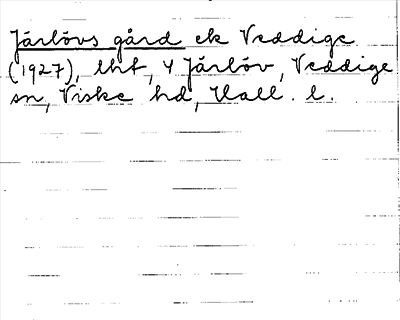 Järlövs gård ek Veddige
(1927), lht, 4 Järlöv, Veddige
sn, Viske hd, Hall. l.